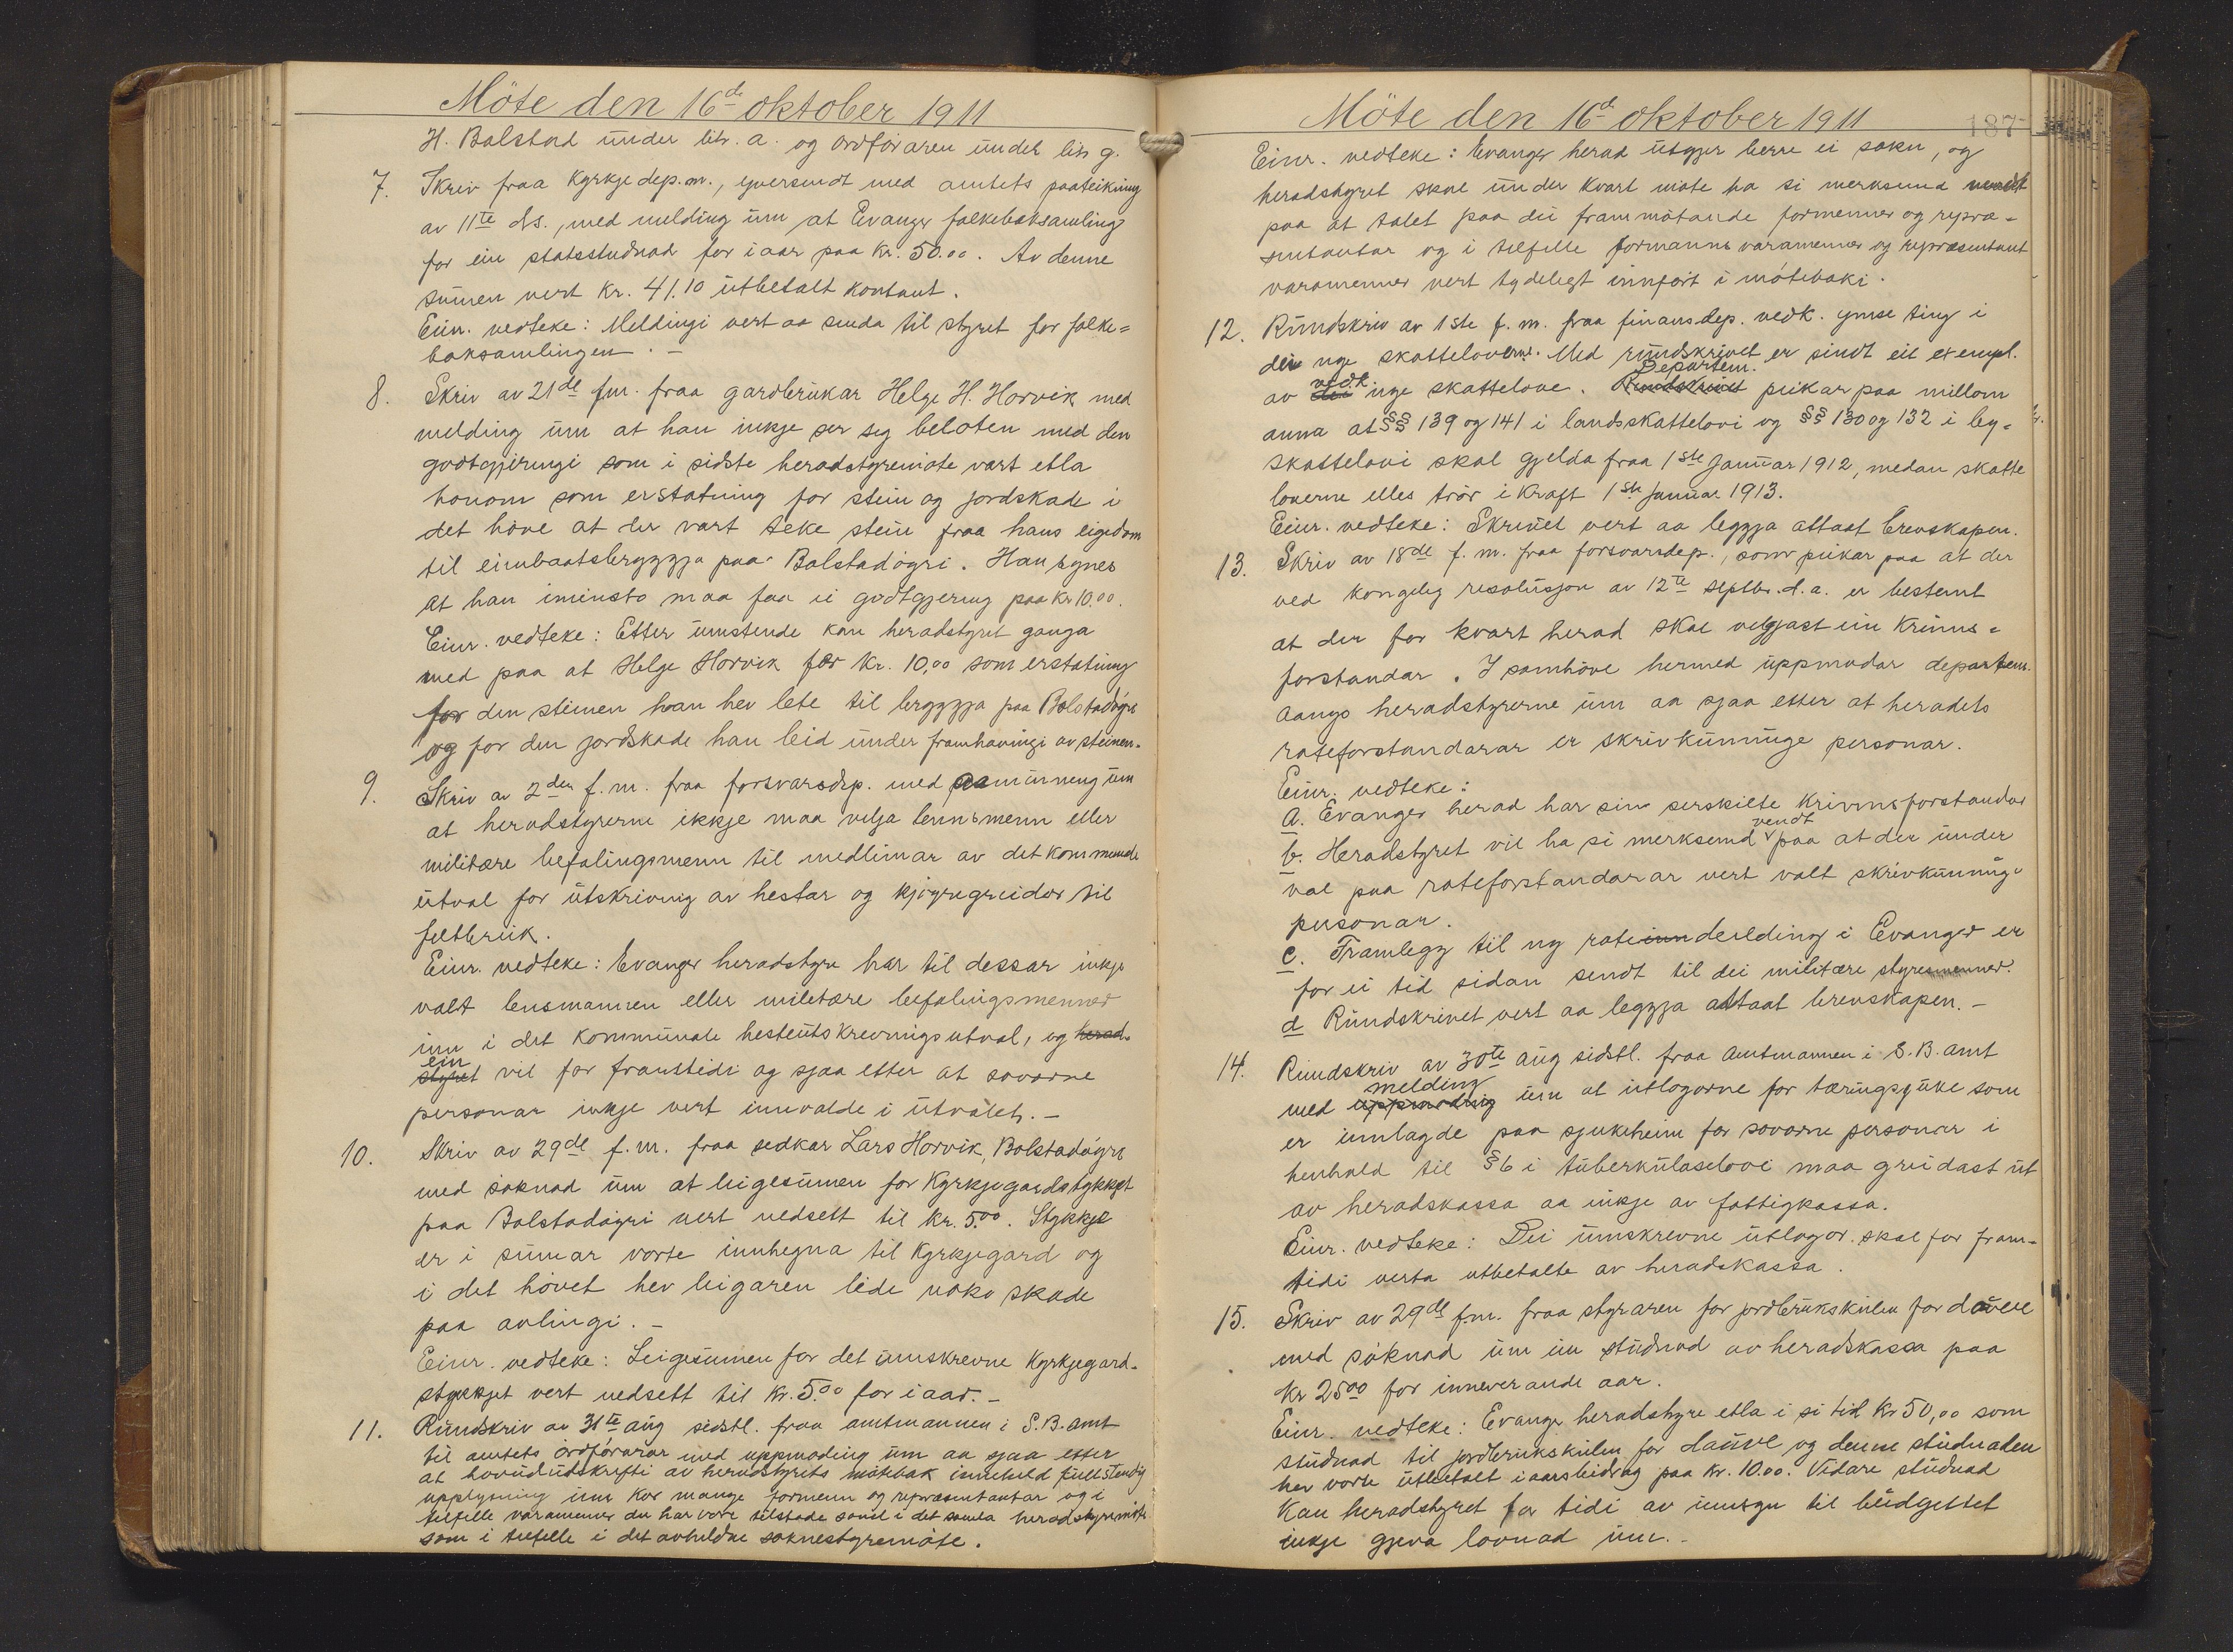 Möte den 16de oktober 1911
H. Bolstad under litr. a. og ordføraren under litr g.
7. Skriv fraa Kyrkjedep.m., yversendt med amtets paateikning
av 11te ds., med melding um at Evanger folkeboksamling
fær ein statsstudnad for iaar paa kr. 50.00. Av denne
sumen vert kr. 41.10 utbetalt kontant.
Einr. vedteke: Meldingi vert aa senda til styret for folke=
boksamlingen. –
8. Skriv av 21de f.m. fraa gardbrukar Helge H. Horvik med
melding um at han inkje ser seg beloten med den
godtgjeringi som i sidste heradstyremöte vart etla
honom som erstatning for stein og jordskade i
det höve at der vart teke stein fraa hans eigedom
til eimbaatsbryggja paa Bolstadöyri. Han synes
at han iminsto maa faa ei godtgjering paa kr 10.00.
Einr. vedteke: Etter umstende kan heradstyret ganga
med paa at Helge Horvik fær kr. 10,00 som erstatning
for den steinen han hev lete til bryggja paa Bolstadöyri
og for den jordskade han leid under framhavingi av steinen.
9. Skriv av 2den f.m. fraa forsvarsdep. med paaminning um
at heradstyrerne ikkje maa velja lensmenn eller
militære befalingsmenn til medlimar av det kommunale
utval for utskrivnig av hestar og kjöyregreidor til
feltbruk.
Einr. vedteke: Evanger heradstyre har til dessar inkje
valt lensmannen eller militære befalingsmenner
inn i det kommunale hesteutskrevningsutval, og herad-
ein
styret vil for framtidi og sjaa etter at sovorne
personar inkje vert innvalde i utvalet. –
10. Skriv av 29de f.m. fraa sedkar Lars Horvik, Bolstadöyri
med söknad um at leigesumen for Kyrkjegardstykket
paa Bolstadöyri vert nedsett til kr. 5.00. Stykkje
er i sumar vorte innhegna til Kyrkjegard og
i det hövet hev leigaren lide noko skade
paa avlingi. –
Einr. vedteke: Leigesumen for det umskrevne Kyrkjegard-
stykkjet vert nedsett til kr. 5.00 for iaar. –
11. Rundskriv av 31te aug sidstl. fraa amtmannen i S.B. amt
til amtets ordförarar med uppmoding um aa sjaa etter
at hovududskrifti av heradstyrets mötebok inneheld fullstendig
upplysning um kor mange formenn og repræsentantar og i
tilfelle varamenner der har vore tilstade samt i det samla heradstyremöte
som i tilfelle i det avheldne soknestyremöte.
Möte den 16de oktober 1911
187
Einr. vedteke: Evanger herad utgjer berre ei sokn, og
heradstyret skal under kvart möte ha si merksemd vendt
paa at talet paa dei frammötande formenner og repræ=
sentantar og i tilfelle formanns varamenner og repræsentant
varamenner vert tydelegt innfört i möteboki.
12. Rundskriv av 1ste f.m. fraa finansdep. vedk. ymse ting i
dei nye skattelovene. Med rundskrivet er sendt eit exempl.
vedk. Departem.
av dei nye skattelove. Rundskrivet peikar paa millom
anna at §§ 139 og 141 i landsskattelovi og §§ 130 og 132 i by=
skattelovi skal gjelda fraa 1ste Januar 1912, medan skatte
loverne elles trör i kraft 1ste Januar 1913.
Einr. vedteke: Skrivet vert aa leggja attaat brevskapen.
13. Skriv av 18de f.m. fraa forsvarsdep., som peikar paa at der
ved kongeleg resolusjon av 12te septbr. d.a. er bestemt
at der for kvart herad skal veljast ein krinns=
forstandar. I samhöve hermed uppmodar departem.
aangs heradstyrerne um aa sjaa etter at heradets
roteforstandarar er skrivkunnuge personar.
Einr. vedteke:
a. Evanger herad har sin serskilte krinnsforstandar
vendt
b. Heradstyret vil ha si merksemd paa at der under
val paa roteforstandarar vert valt skrivkunnuge
personar.
c. Framlegg til ny roteinndeilding i Evanger er
for ei tid sidan sendt til dei militære styresmenner.
d Rundskrivet vert aa leggja attaat brevskapen. –
14. Rundskriv av 30te aug sidstl. fraa Amtmannen i S.B. amt
melding
med uppmoding um at utlogorne for tæringsjuke som
er innlagde paa sjukeheim for sovorne personar i
henhald til § 6 i tuberkulaselovi maa greidast ut
av heradskassa aa inkje av fattigkassa.
Einr. vedteke: Dei umskrevne utlogor skal for fram=
tidi verta utbetalte av heradskassa.
15. Skriv av 29de f.m. fraa styraren for jordbrukskulen for dauve
med söknad um ein studnad av heradskassa paa
kr 25.00 for inneverande aar.
Einr. vedteke: Evanger heradstyre etla i si tid kr 50,00 som
studnad til jordbrukskulen for dauve og denne studnaden
hev vorte utbetalt i aarsbeidrag paa kr. 10.00. Vidare studnad
kan heradstyret for tidi av umsyn til budgettet
inkje gjeva lovnad um. –